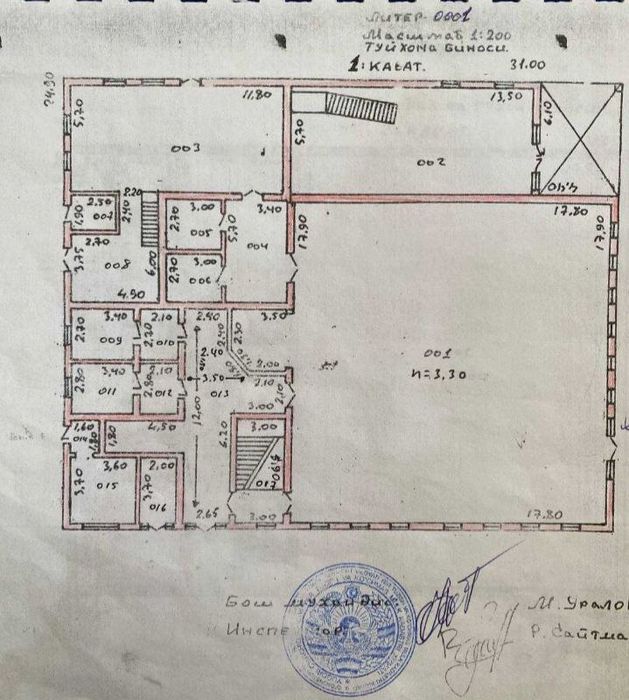 ЛИТЕР 0001
Масштаб 1:200
ТУЙХОНА БИНОСИ.
1: КАВАТ. 31.00
24.90
11,80
13,50
5,70
5,70
6,10
003
002
4,40
2,20
17,80
2,50
1,90
007
2,40
3,00
2,70
005
5,70
3,40
004
17,90
17,90
2,70
3,75
008
6,00
3,00
2,70
006
4,90
3,40
2,70
009
2,10
2,70
010
2,40
2,40
2,30
3,50
2,40
2,00
001
h=3,30
3,40
2,80
011
2,10
2,80
012
3,50
013
2,10
2,10
3,00
12,00
1,60
014
1,80
1,80
4,50
6,20
3,00
3,60
3,70
015
2,00
3,70
016
017
2,65
3,00
17.80
Бош мухандис М. Урало
Инспектор Р. Сайтма